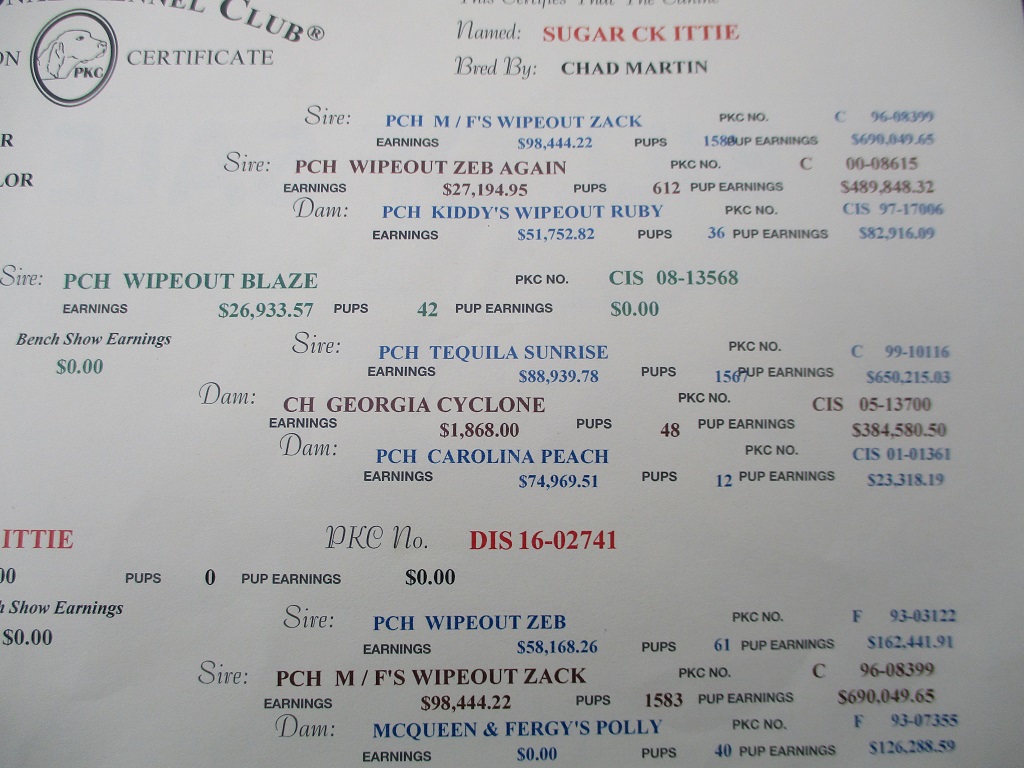 CLUB®
This Certifies That The Canine
CERTIFICATE
PKC
Named: SUGAR CK ITTIE
Bred By: CHAD MARTIN
Sire: PCH M / F'S WIPEOUT ZACK PKC NO. C 96-08399
EARNINGS $98,444.22 PUPS 1580 PUP EARNINGS $690,049.65
Sire: PCH WIPEOUT ZEB AGAIN PKC NO. C 00-08615
EARNINGS $27,194.95 PUPS 612 PUP EARNINGS $489,848.32
Dam: PCH KIDDY'S WIPEOUT RUBY PKC NO. CIS 97-17006
EARNINGS $51,752.82 PUPS 36 PUP EARNINGS $82,916.09
Sire: PCH WIPEOUT BLAZE PKC NO. CIS 08-13568
EARNINGS $26,933.57 PUPS 42 PUP EARNINGS $0.00
Bench Show Earnings
$0.00
Sire: PCH TEQUILA SUNRISE PKC NO. C 99-10116
EARNINGS $88,939.78 PUPS 1567 PUP EARNINGS $650,215.03
Dam: CH GEORGIA CYCLONE PKC NO. CIS 05-13700
EARNINGS $1,868.00 PUPS 48 PUP EARNINGS $384,580.50
Dam: PCH CAROLINA PEACH PKC NO. CIS 01-01361
EARNINGS $74,969.51 PUPS 12 PUP EARNINGS $23,318.19
ITTIE PKC No. DIS 16-02741
00 PUPS 0 PUP EARNINGS $0.00
h Show Earnings
$0.00
Sire: PCH WIPEOUT ZEB PKC NO. F 93-03122
EARNINGS $58,168.26 PUPS 61 PUP EARNINGS $162,441.91
Sire: PCH M / F'S WIPEOUT ZACK PKC NO. C 96-08399
EARNINGS $98,444.22 PUPS 1583 PUP EARNINGS $690,049.65
Dam: MCQUEEN & FERGY'S POLLY PKC NO. F 93-07355
EARNINGS $0.00 PUPS 40 PUP EARNINGS $126,288.59